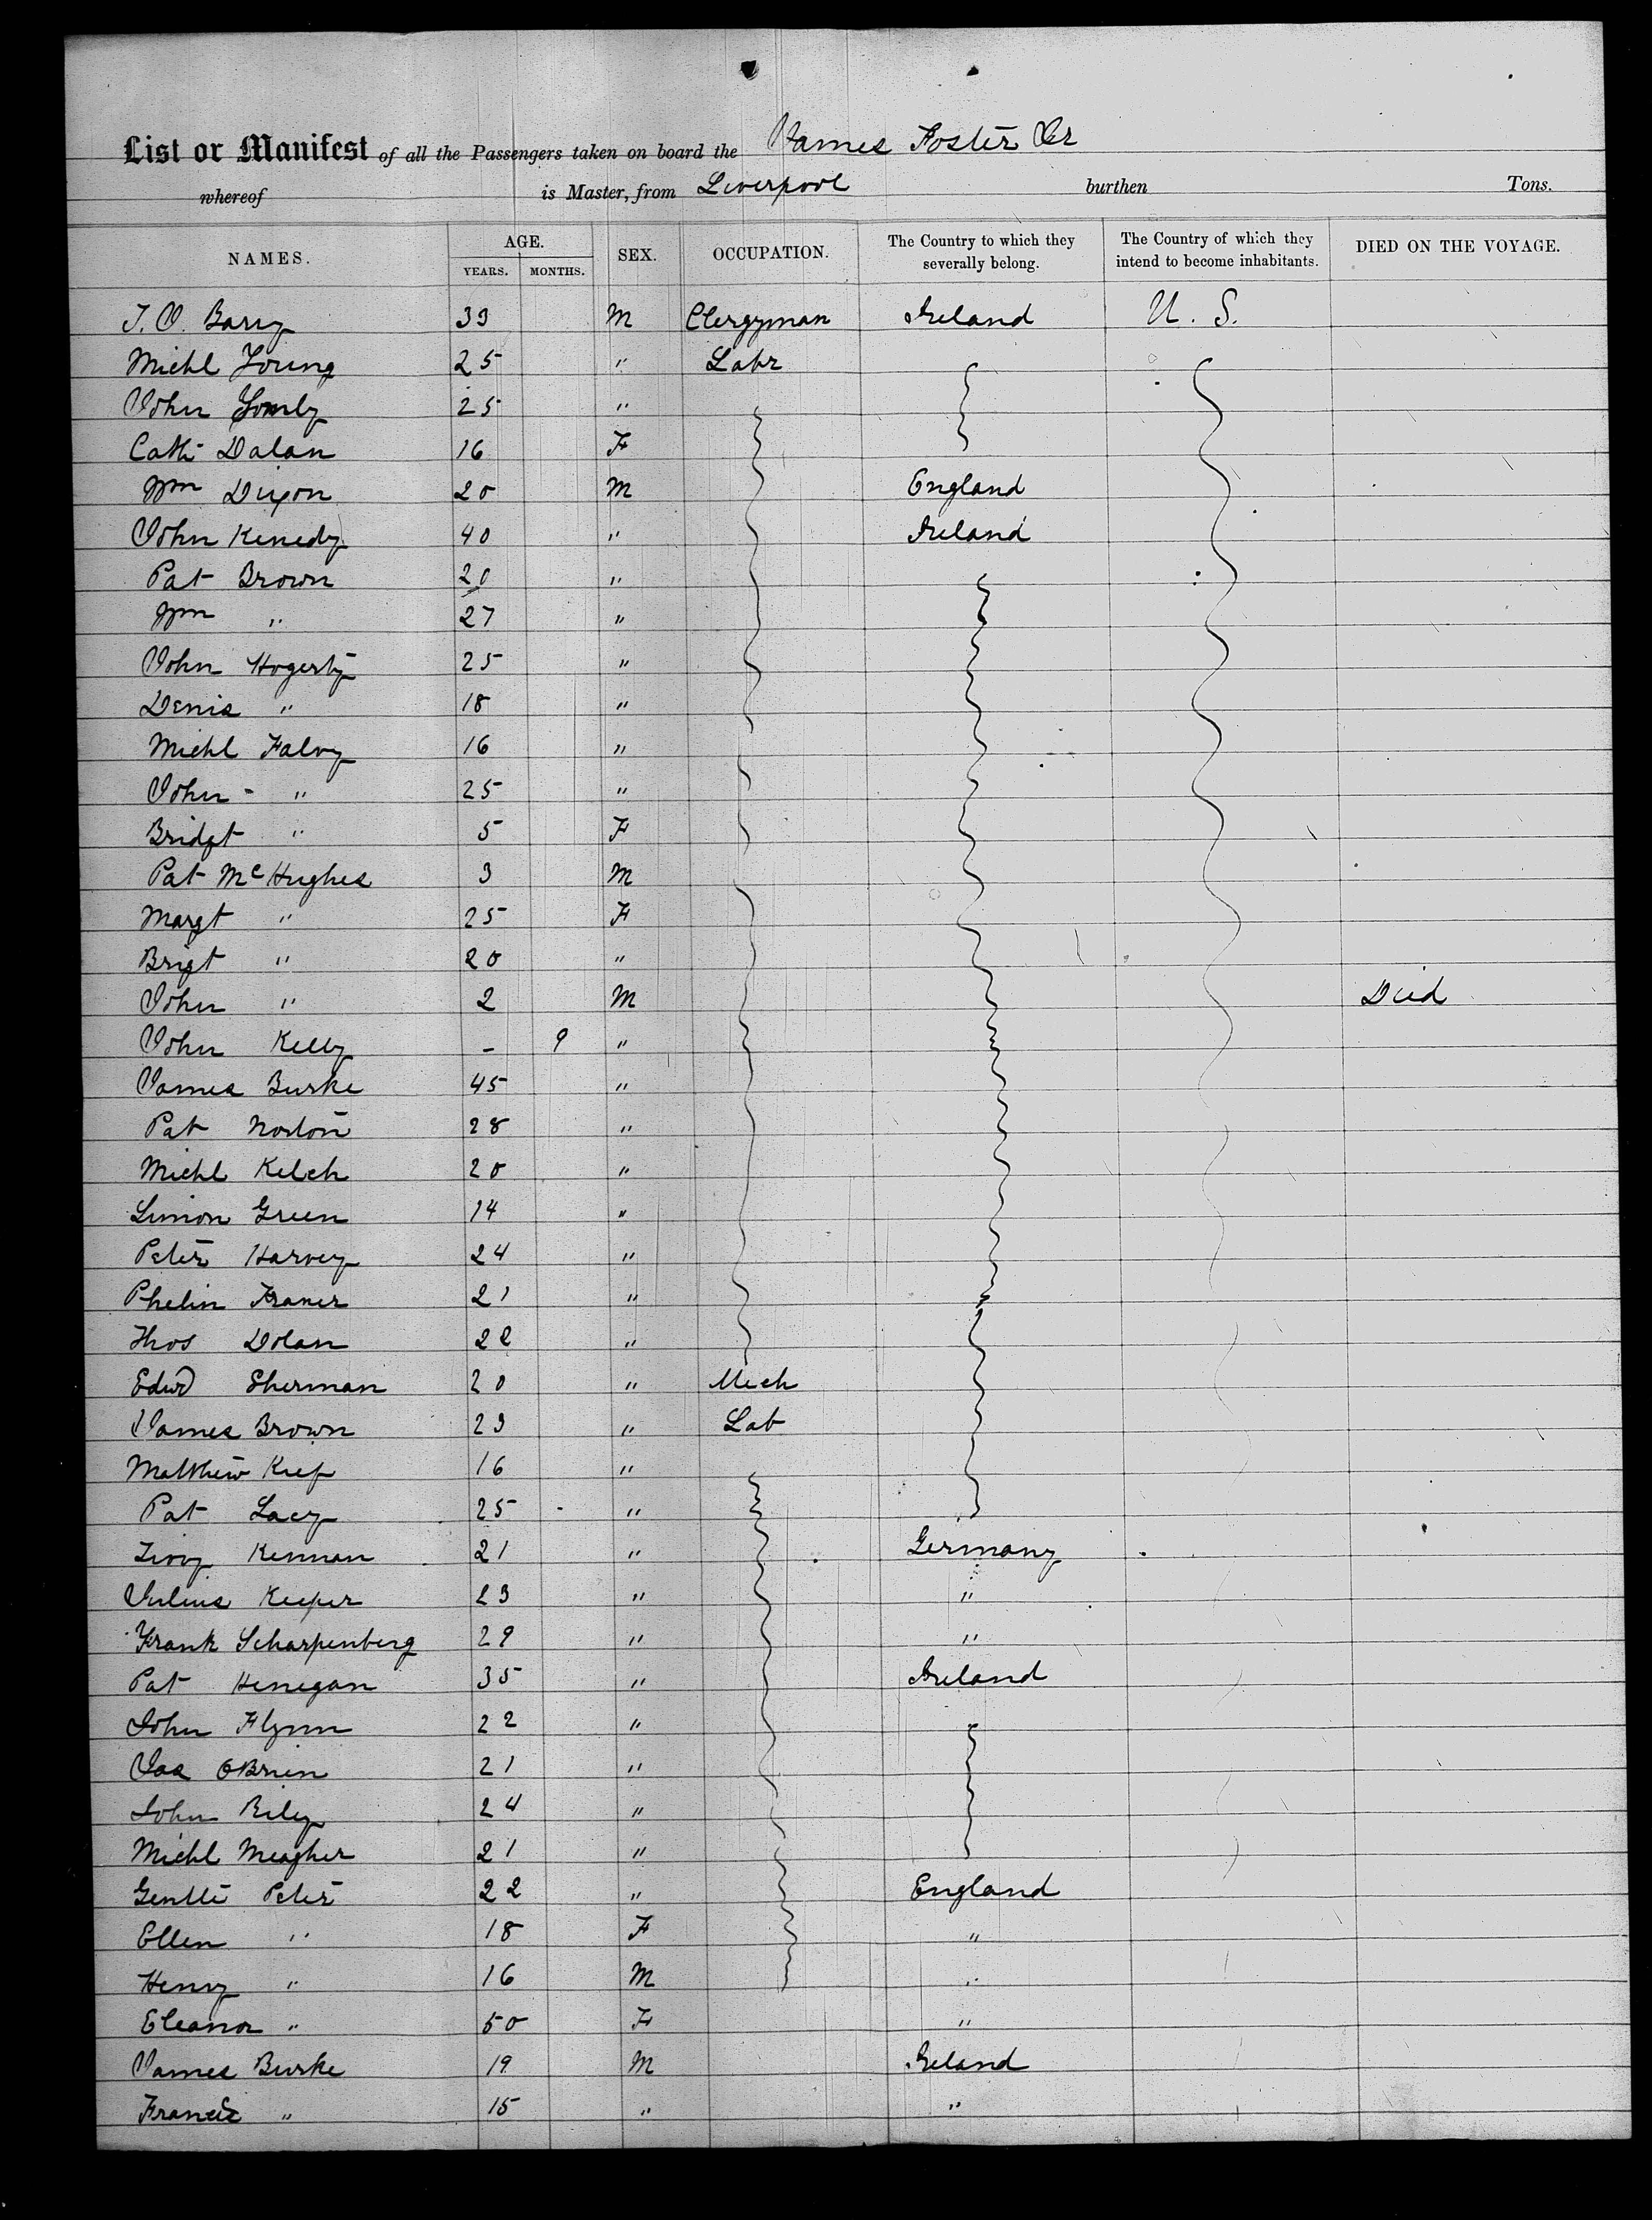 List or Manifest of all the Passengers taken on board the James Foster Jr
whereof is Master, from Liverpool burthen Tons.
NAMES. AGE. YEARS. MONTHS. SEX. OCCUPATION. The Country to which they severally belong. The Country of which they intend to become inhabitants. DIED ON THE VOYAGE.
J. O. Barry 33 M Clergyman Ireland U. S.
Michl Young 25 " Labr
John 25 "
Cath Dalan 16 F
Wm Dixon 20 M England
John Kenedy 40 " Ireland
Pat Brown 20 "
Wm " 27 "
John Hogerty 25 "
Denis " 18 "
Michl Falvy 16 "
John - " 25 "
Bridgt " 5 F
Pat McHughes 3 M
Margt " 25 F
Brigt " 20 "
John " 2 M Died
John Kelly - 9 "
James Burke 45 "
Pat Norton 28 "
Michl Kelch 20 "
Simon Green 14 "
Peter Harvey 24 "
Phelin 21 "
Thos Dolan 22 "
Edwd Sherman 20 " Mech
James Brown 23 " Lab
Matthew 16 "
Pat Lacy 25 "
Kennan 21 " Germany
Julius Keeper 23 " "
Frank Scharpenberg 29 " "
Pat Henegan 35 " Ireland
John Flynn 22 "
Jas OBrien 21 "
John Rily 24 "
Michl Meagher 21 "
Gentle Peter 22 " England
Ellen " 18 F "
Henry " 16 M "
Eleanor " 50 F "
James Burke 19 M Ireland
Francis " 15 " "